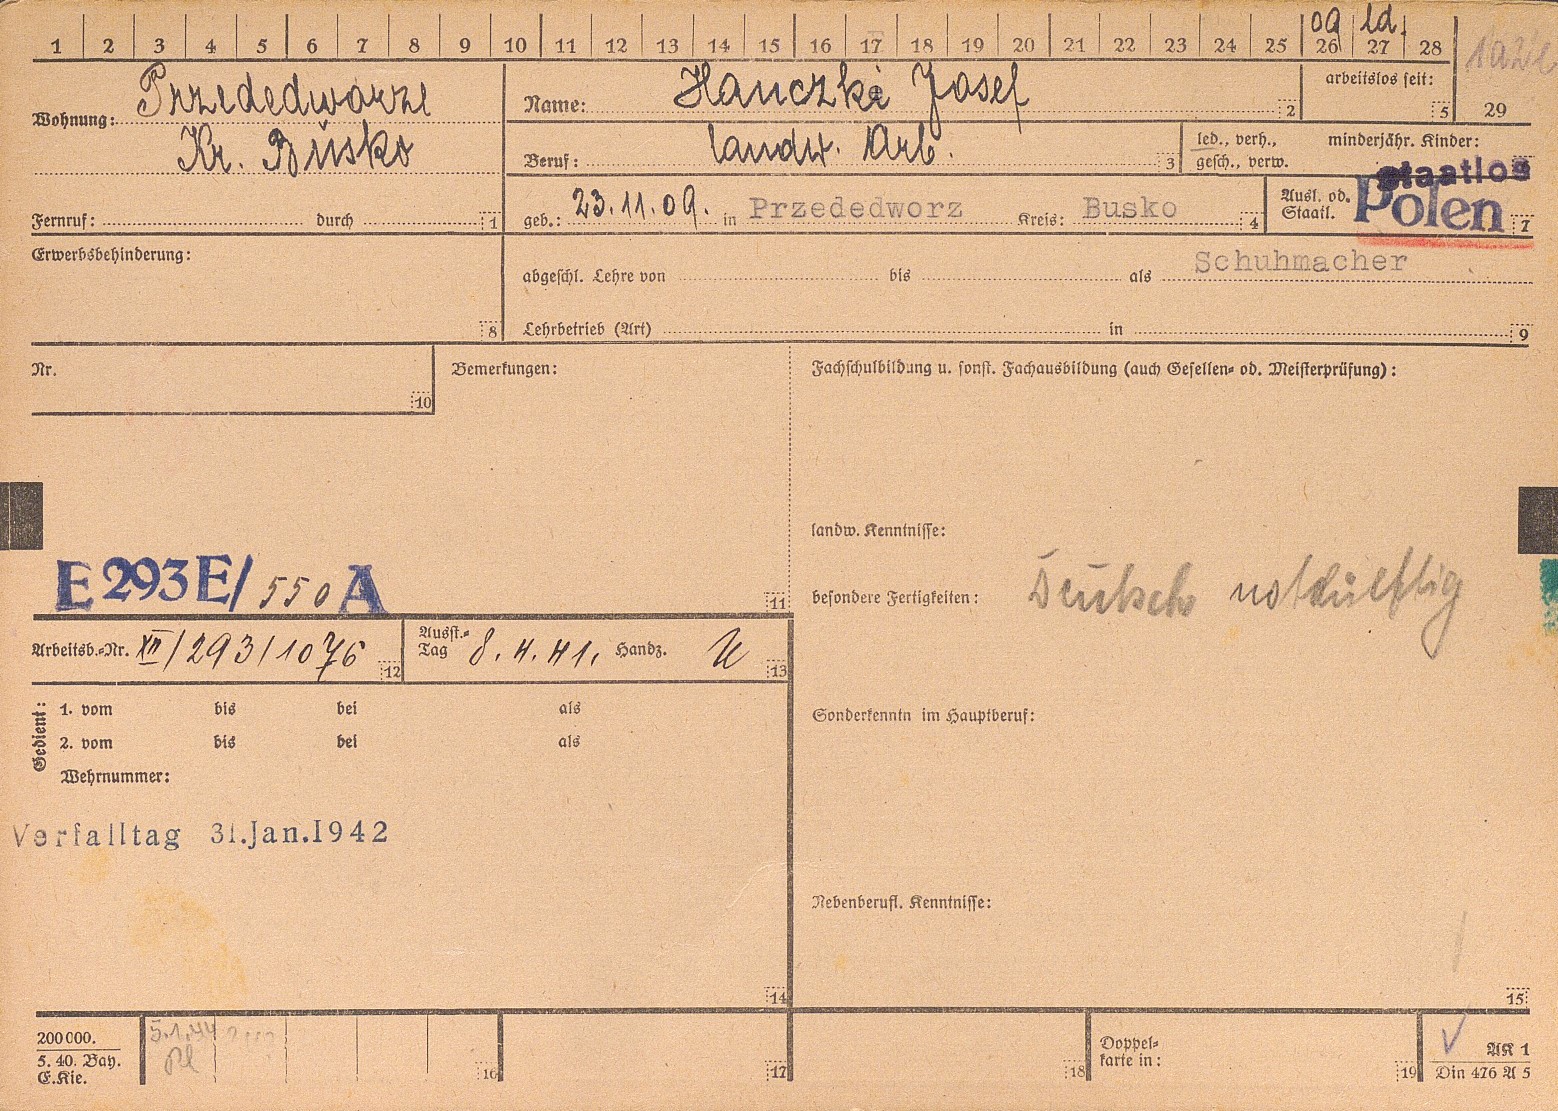 1 2 3 4 5 6 7 8 9 10 11 12 13 14 15 16 17 18 19 20 21 22 23 24 25 26 27 28
09 ld.
Wohnung: Przededworze
Kr. Busko
Name: Hanczke Josef 2
arbeitslos seit: 5
29
Beruf: landw. Arb. 3
led., verh.,
gesch., verw.
minderjähr. Kinder:
Fernruf: durch 1
geb.: 23.11.09. in Przededworz Kreis: Busko 4
Ausl. od.
Staatl.
staatlos
Polen 7
Erwerbsbehinderung: 8
Schuhmacher
abgeschl. Lehre von bis als
Lehrbetrieb (Art) in 9
Nr. 10
Bemerkungen:
Fachschulbildung u. sonst. Fachausbildung (auch Gesellen- od. Meisterprüfung):
landw. Kenntnisse:
E 293 E/ 550 A 11
besondere Fertigkeiten: Deutsch notdürftig
Arbeitsb.-Nr. XII/293/1076 12
Ausst.-
Tag 8.4.41. Handz. 13
Gedient:
1. vom bis bei als
2. vom bis bei als
Wehrnummer:
Sonderkenntn im Hauptberuf:
Verfalltag 31.Jan.1942
Nebenberufl. Kenntnisse:
14
15
200000.
5. 40. Bay.
E.Kie.
5.1.44
16
17
18
Doppel-
karte in: 19
AK 1
Din 476 A 5